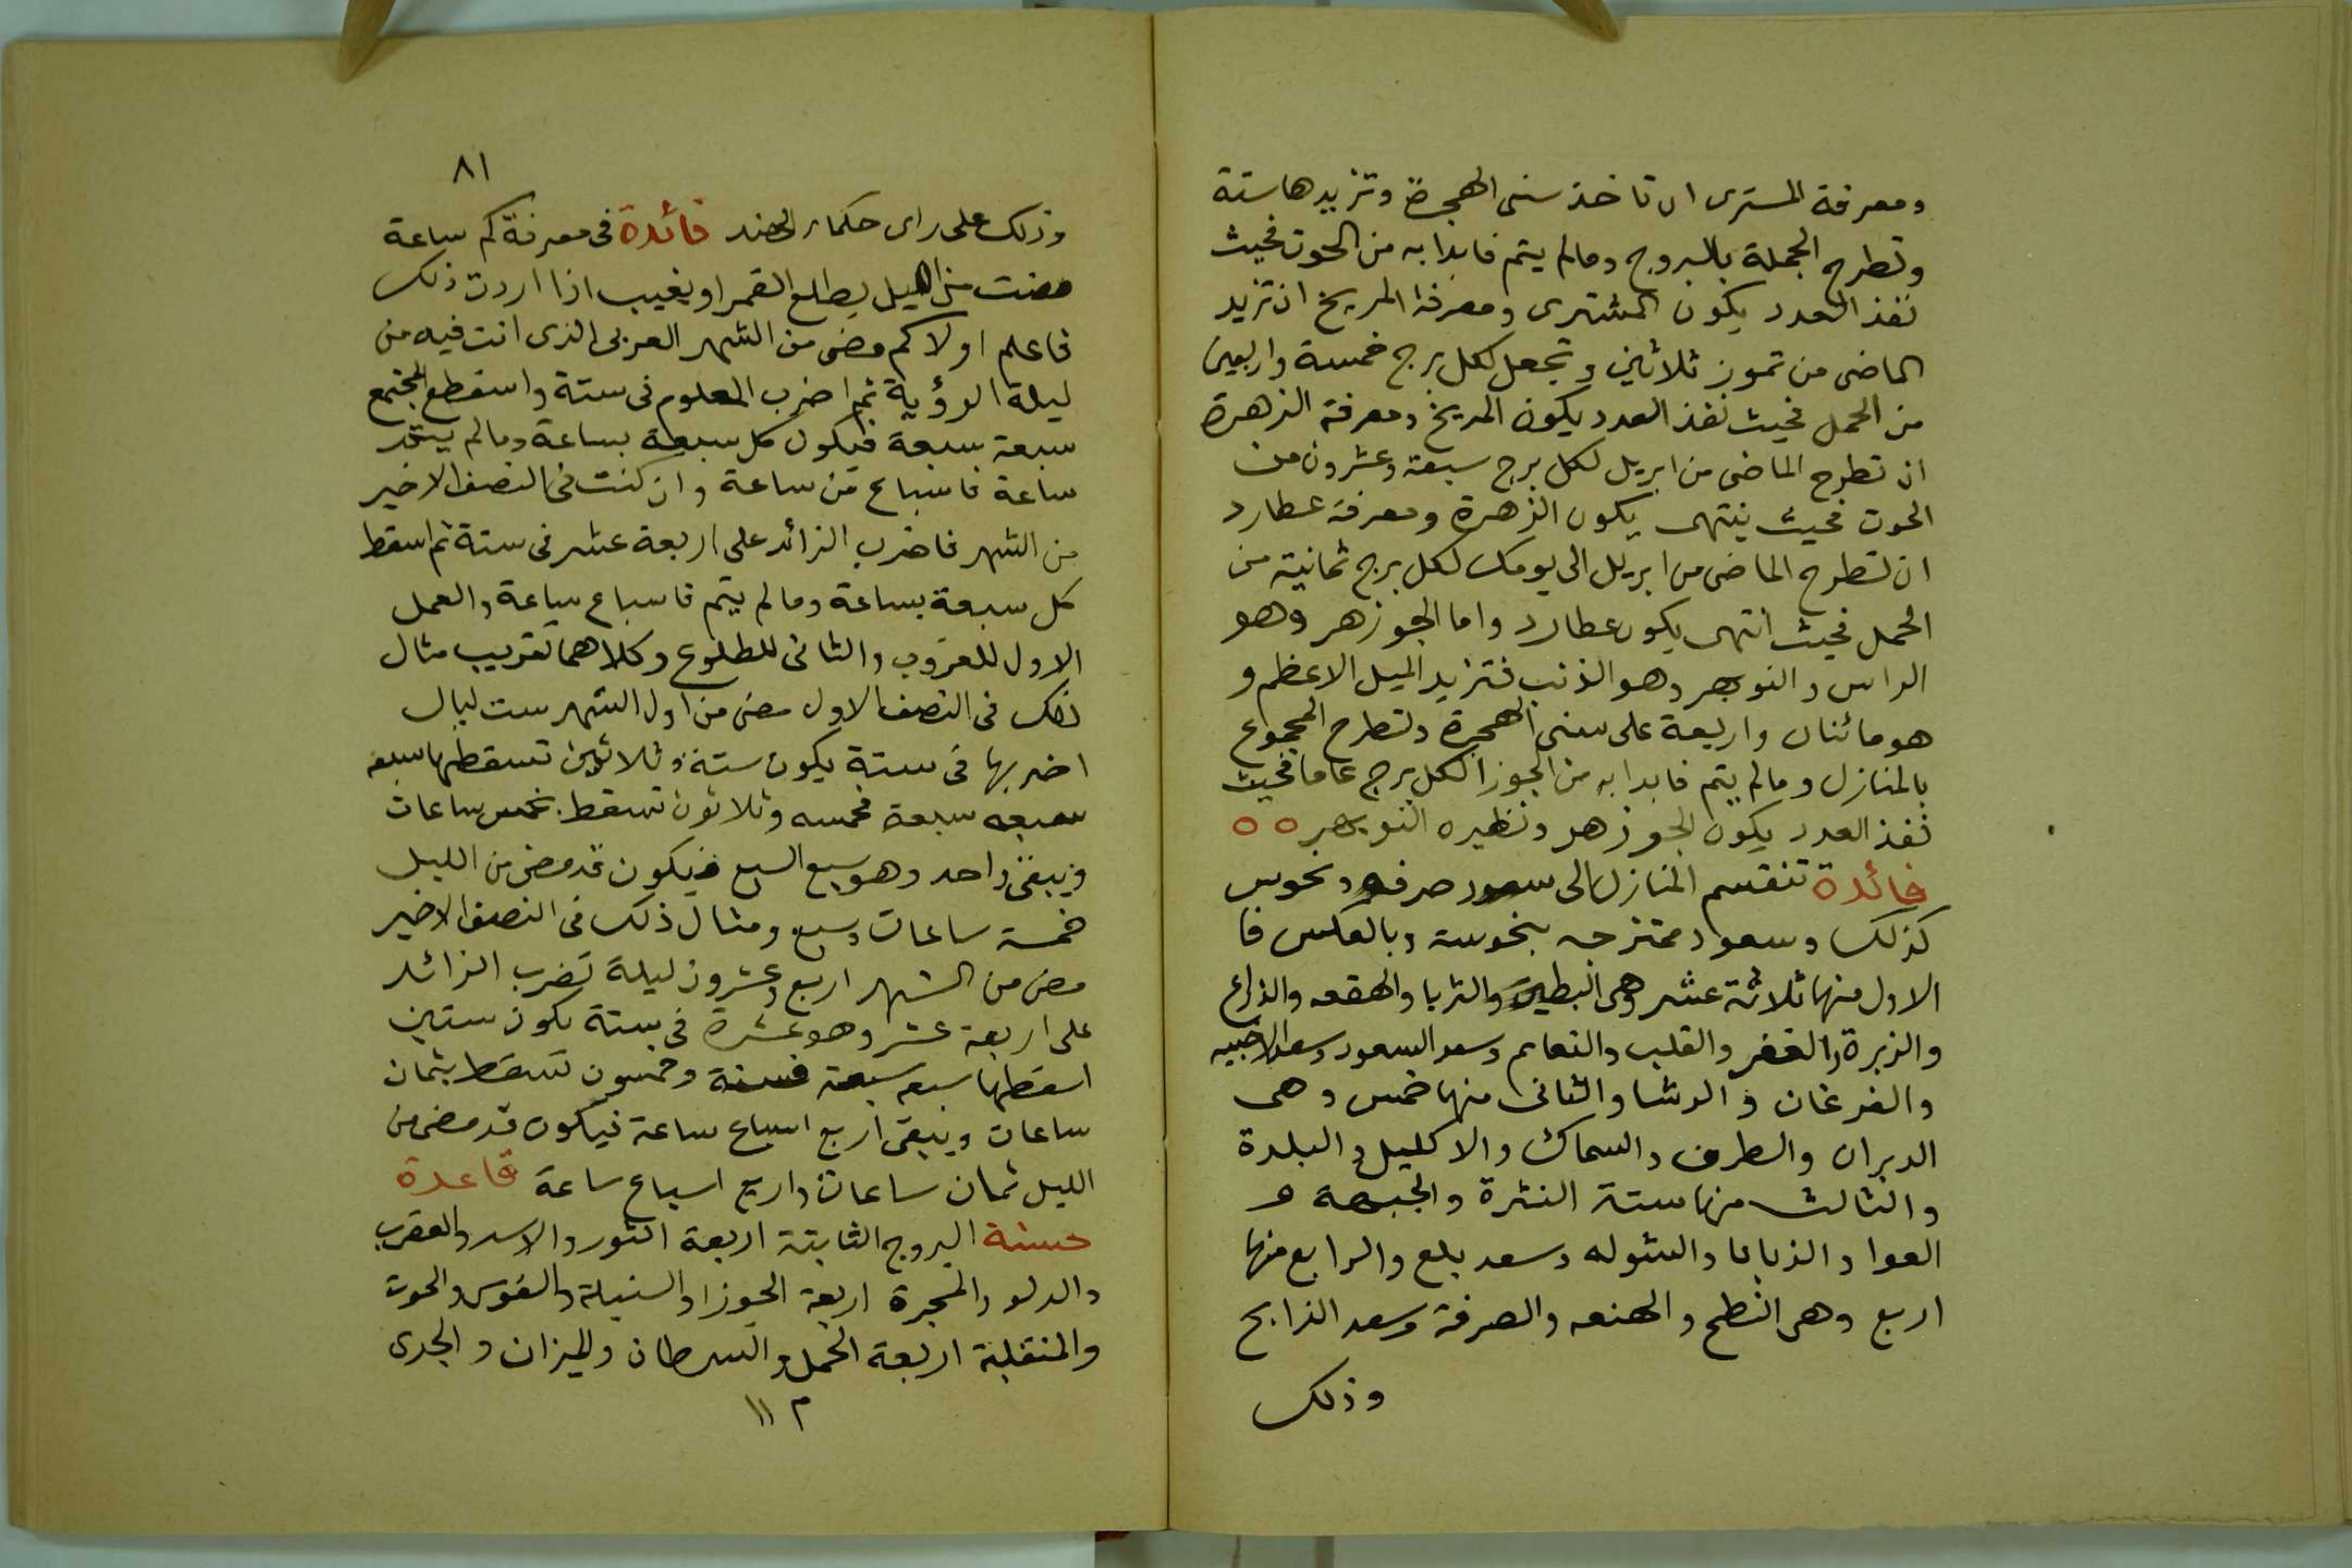 ومعرفة المسترى ان تاخذ سنى الهجرة وتزيدها ستة
وتطرح الجملة بالبروج ومالم يتم فابدا به من الحوت فحيث
نفذ العدد يكون المشترى ومعرفة المريخ ان تزيد
الماضى من تموز ثلاثين وتجعل لكل برج خمسة واربعين
من الحمل فحيث نفذ العدد يكون المريخ ومعرفة الزهرة
ان تطرح الماضى من ابريل لكل برج سبعة وعشرون من
الحوت فحيث ينتهى يكون الزهرة ومعرفة عطارد
ان تطرح الماضى من ابريل الى يومك لكل برج ثمانية من
الحمل فحيث انتهى يكون عطارد واما الجوزهر وهو
الراس والنوبهر وهو الذنب فتزيد الميل الاعظم و
هو مائتان واربعة على سنى الهجرة وتطرح المجموع
بالمنازل ومالم يتم فابدا به من الجوزا لكل برج عاما فحيث
نفذ العدد يكون الجوزهر ونظيره النوبهر ه ه
فائدة تنقسم المنازل الى سعود صرفه ونحوس
كذلك وسعود ممتزجه بنحوسة وبالعكس فا
الاول منها ثلاثة عشر وهى البطين والثريا والهقعه والذراع
والزبرة والغفر والقلب والنعايم وسعد السعود وسعد الاخبيه
والفرغان والرشا والثانى منها خمس وهى
الدبران والطرف والسماك والاكليل والبلدة
والثالث منها ستة النثرة والجبهة و
العوا والزبانا والشوله وسعد بلع والرابع منها
اربع وهى النطح والهنعه والصرفة وسعد الذابح
وذلك
٨١
وذلك على راى حكماء الهند فائدة فى معرفة كم ساعة
مضت من الليل يطلع القمر او يغيب اذا اردت ذلك
فاعلم اولا كم مضى من الشهر العربى الذى انت فيه من
ليلة الرؤية ثم اضرب المعلوم فى ستة واسقط المجتمع
سبعة سبعة فيكون كل سبعة بساعة ومالم يتم
ساعة فاسباع من ساعة وان كنت فى النصف الاخير
من الشهر فاضرب الزائد على اربعة عشر فى ستة ثم اسقط
كل سبعة بساعة ومالم يتم فاسباع ساعة والعمل
الاول للغروب والثانى للطلوع وكلاهما تقريب مثال
ذلك فى النصف الاول مضى من اول الشهر ست ليال
اضربها فى ستة يكون ستة وثلاثين تسقطها سبعه
سبعه سبعة فخمسه وثلاثون تسقط بخمس ساعات
ويبقى واحد وهو سبع السبع فيكون قد مضى من الليل
خمسة ساعات وسبع ومثال ذلك فى النصف الاخير
مضى من الشهر اربع وعشرون ليلة تضرب الزائد
على اربعة عشر وهو عشرة فى ستة يكون ستين
اسقطها سبعه سبعة فستة وخمسون تسقط بثمان
ساعات ويبقى اربع اسباع ساعة فيكون قد مضى من
الليل ثمان ساعات واربع اسباع ساعة قاعدة
حسنة البروج الثابتة اربعة الثور والاسد والعقرب
والدلو والمجرة اربعة الجوزا والسنبلة والقوس والحوت
والمنقلبة اربعة الحمل والسرطان والميزان والجدى
م ١١